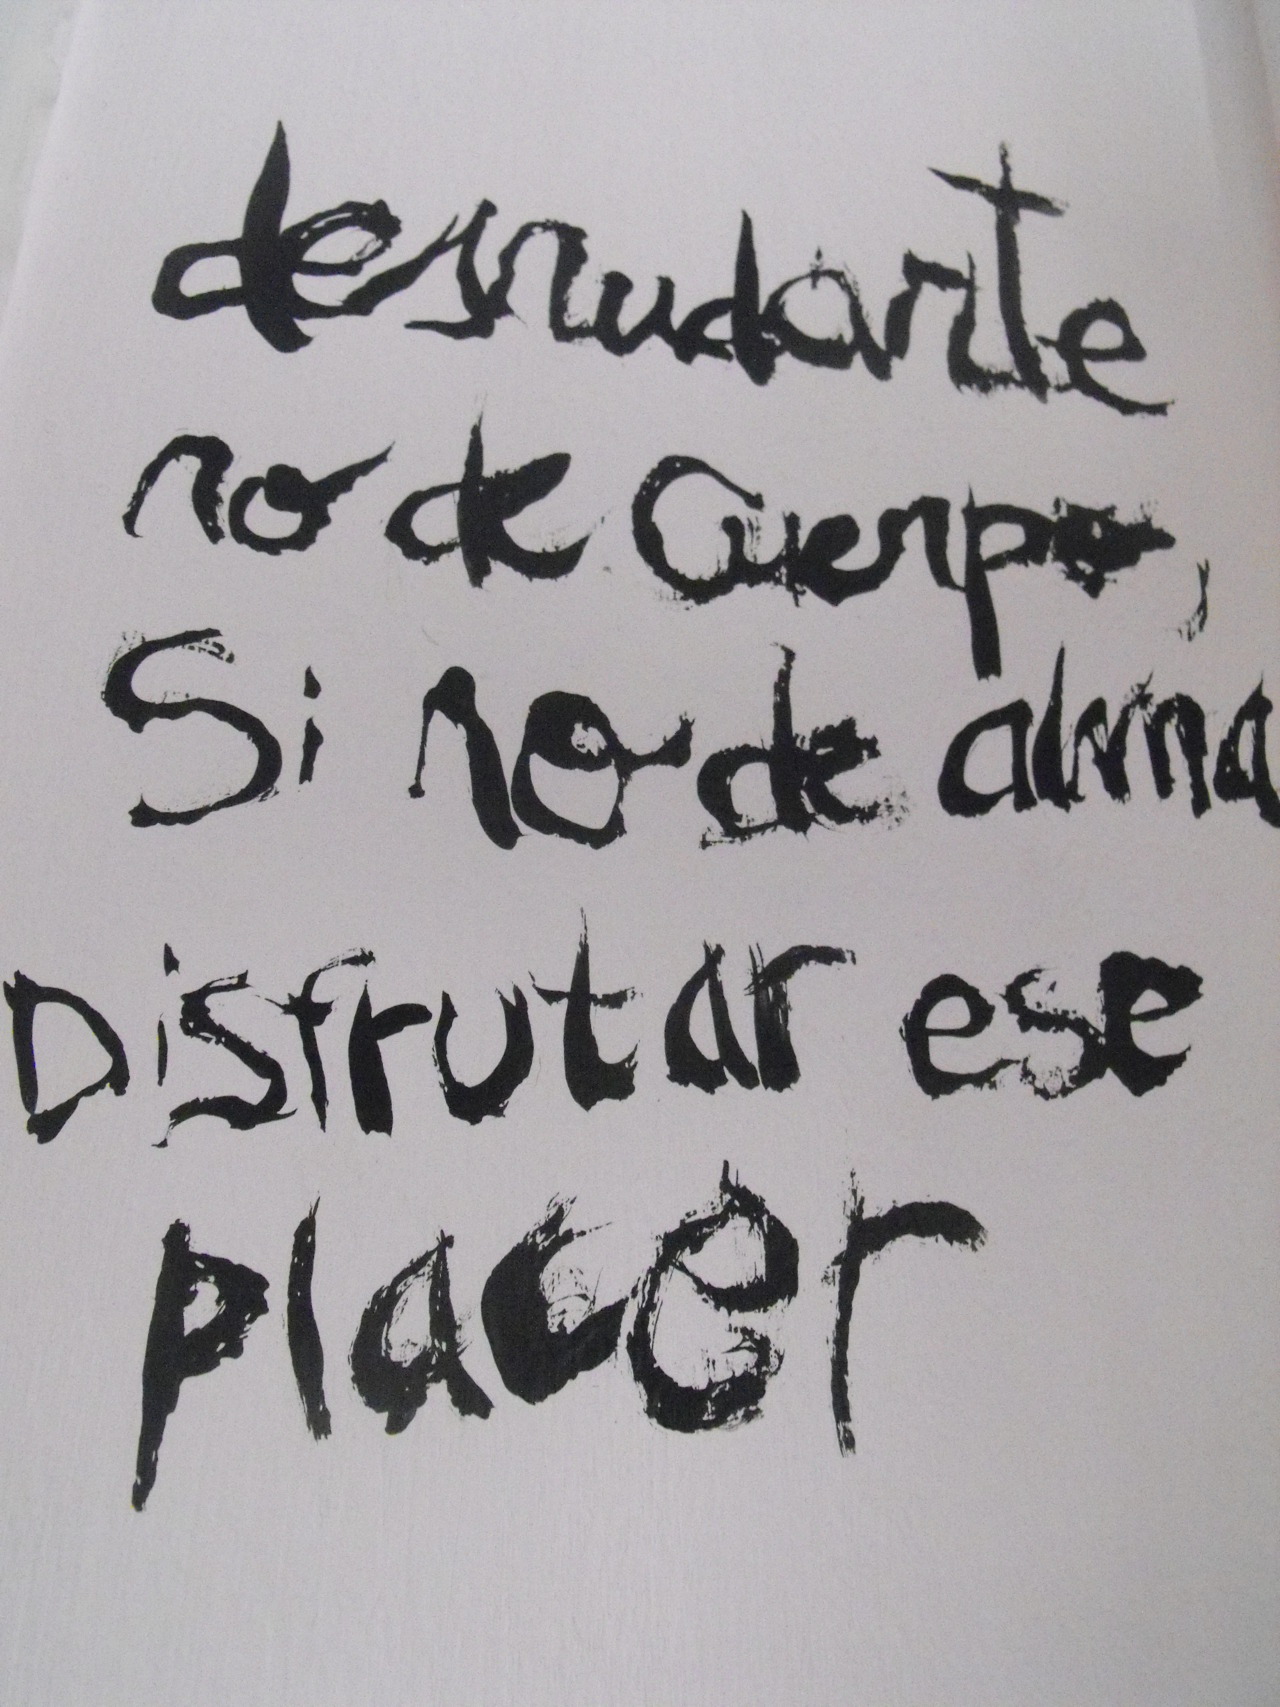 desnudarte
no de Cuerpo,
Si no de alma
Disfrutar ese
placer